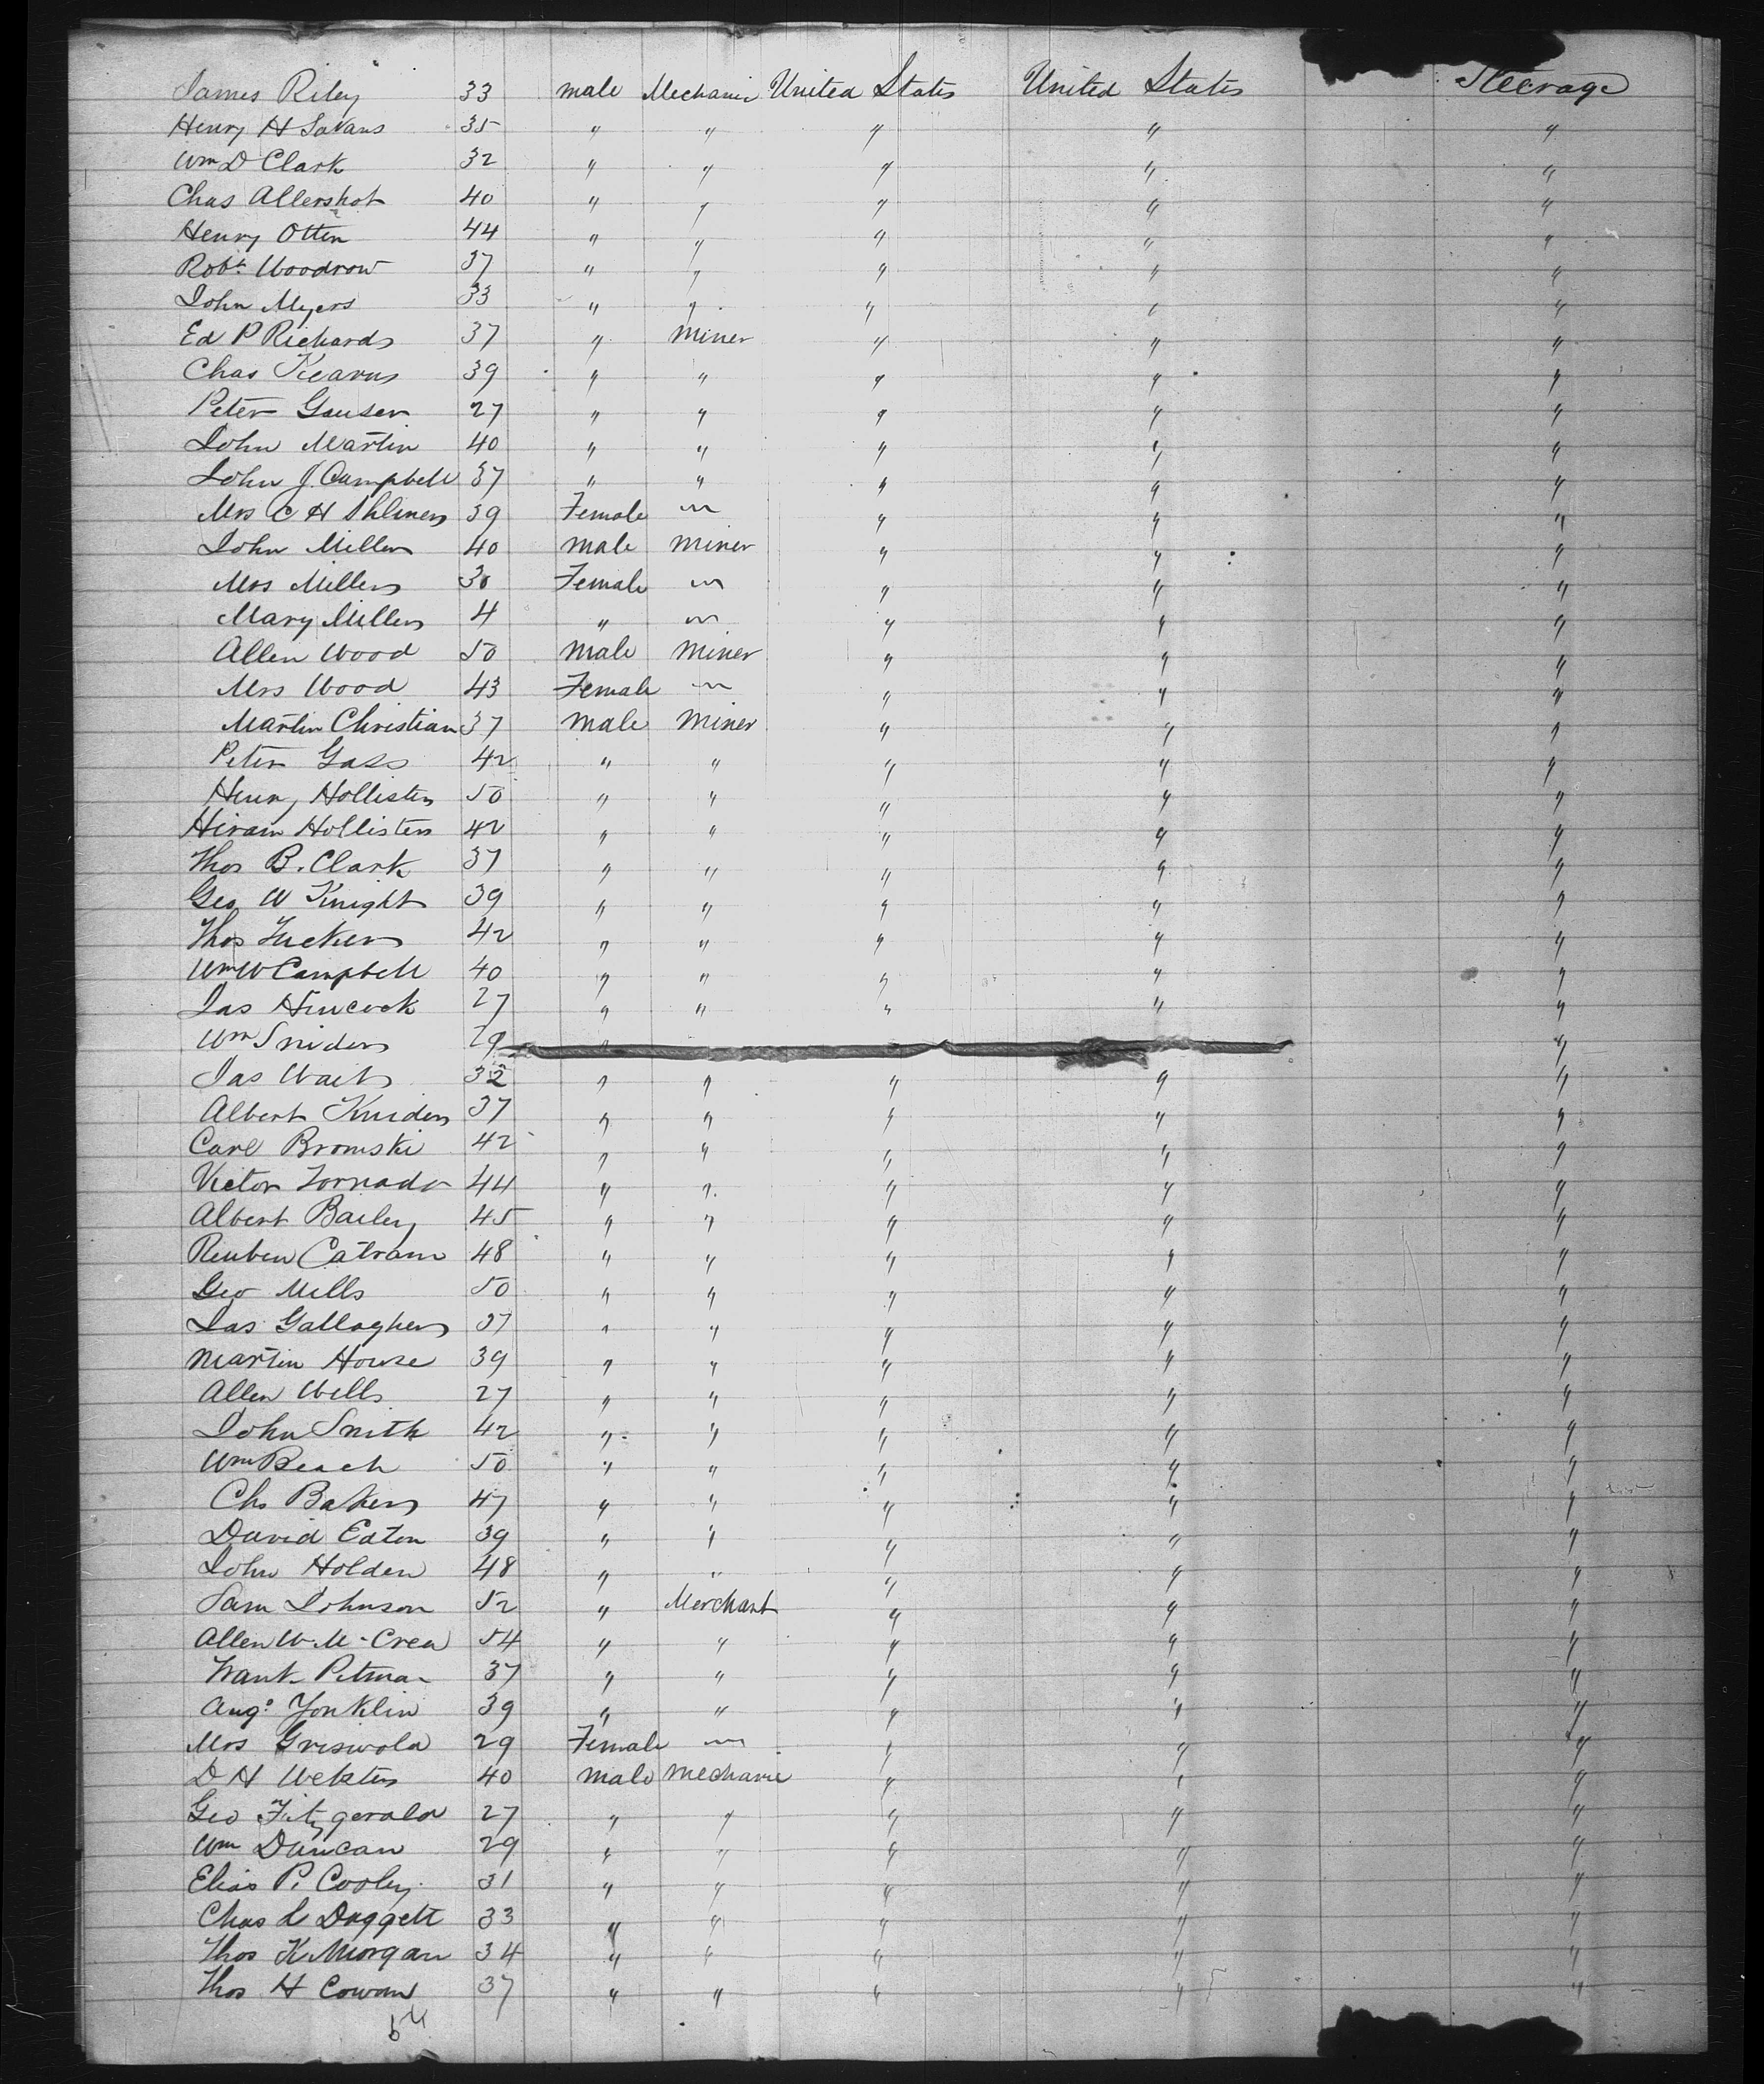 James Riley 33 male Mechanic United States United States Steerage
Henry H 35 " " " " "
Wm D Clark 32 " " " " "
Chas Allershot 40 " " " " "
Henry Otten 44 " " " " "
Robt. Woodrow 37 " " " " "
John Myers 33 " " " " "
Ed P Richards 37 " Miner " " "
Chas Kearns 39 " " " " "
Peter Gauser 27 " " " " "
John Martin 40 " " " " "
John J. Campbell 37 " " " " "
Mrs C H 39 Female ~ " " "
John Miller 40 male miner " " "
Mrs Miller 30 Female ~ " " "
Mary Miller 4 " ~ " " "
Allen Wood 50 Male Miner " " "
Mrs Wood 43 Female ~ " " "
Martin Christian 37 Male Miner " " "
Peter Gass 42 " " " " "
Henry Hollister 50 " " " " "
Hiram Hollister 42 " " " " "
Thos B. Clark 37 " " " " "
Geo W Knight 39 " " " " "
Thos Tucker 42 " " " " "
Wm W Campbell 40 " " " " "
Jas Hincock 27 " " " " "
Wm Snider 29 " "
Jas Wait 32 " " " " "
Albert Knider 37 " " " " "
Carl Bromski 42 " " " " "
Victor Tornado 44 " " " " "
Albert Bailey 45 " " " " "
Reuben Catram 48 " " " " "
Geo Mills 50 " " " " "
Jas Gallagher 37 " " " " "
Martin House 39 " " " " "
Allen Wells 27 " " " " "
John Smith 42 " " " " "
Wm Beach 50 " " " " "
Ch Baker 47 " " " " "
David Eaton 39 " " " " "
John Holden 48 " " " " "
Sam Johnson 52 " Merchant " " "
Allen W McCrea 54 " " " " "
Frank Pitman 37 " " " " "
Aug. Yonklin 39 " " " " "
Mrs Griswold 29 Female ~ " " "
D H Webster 40 male mechanic " " "
Geo Fitzgerald 27 " " " " "
Wm Duncan 29 " " " " "
Elias P. Cooley 31 " " " " "
Chas L Daggett 33 " " " " "
Thos K Morgan 34 " " " " "
Thos H Cowan 37 " " " " "